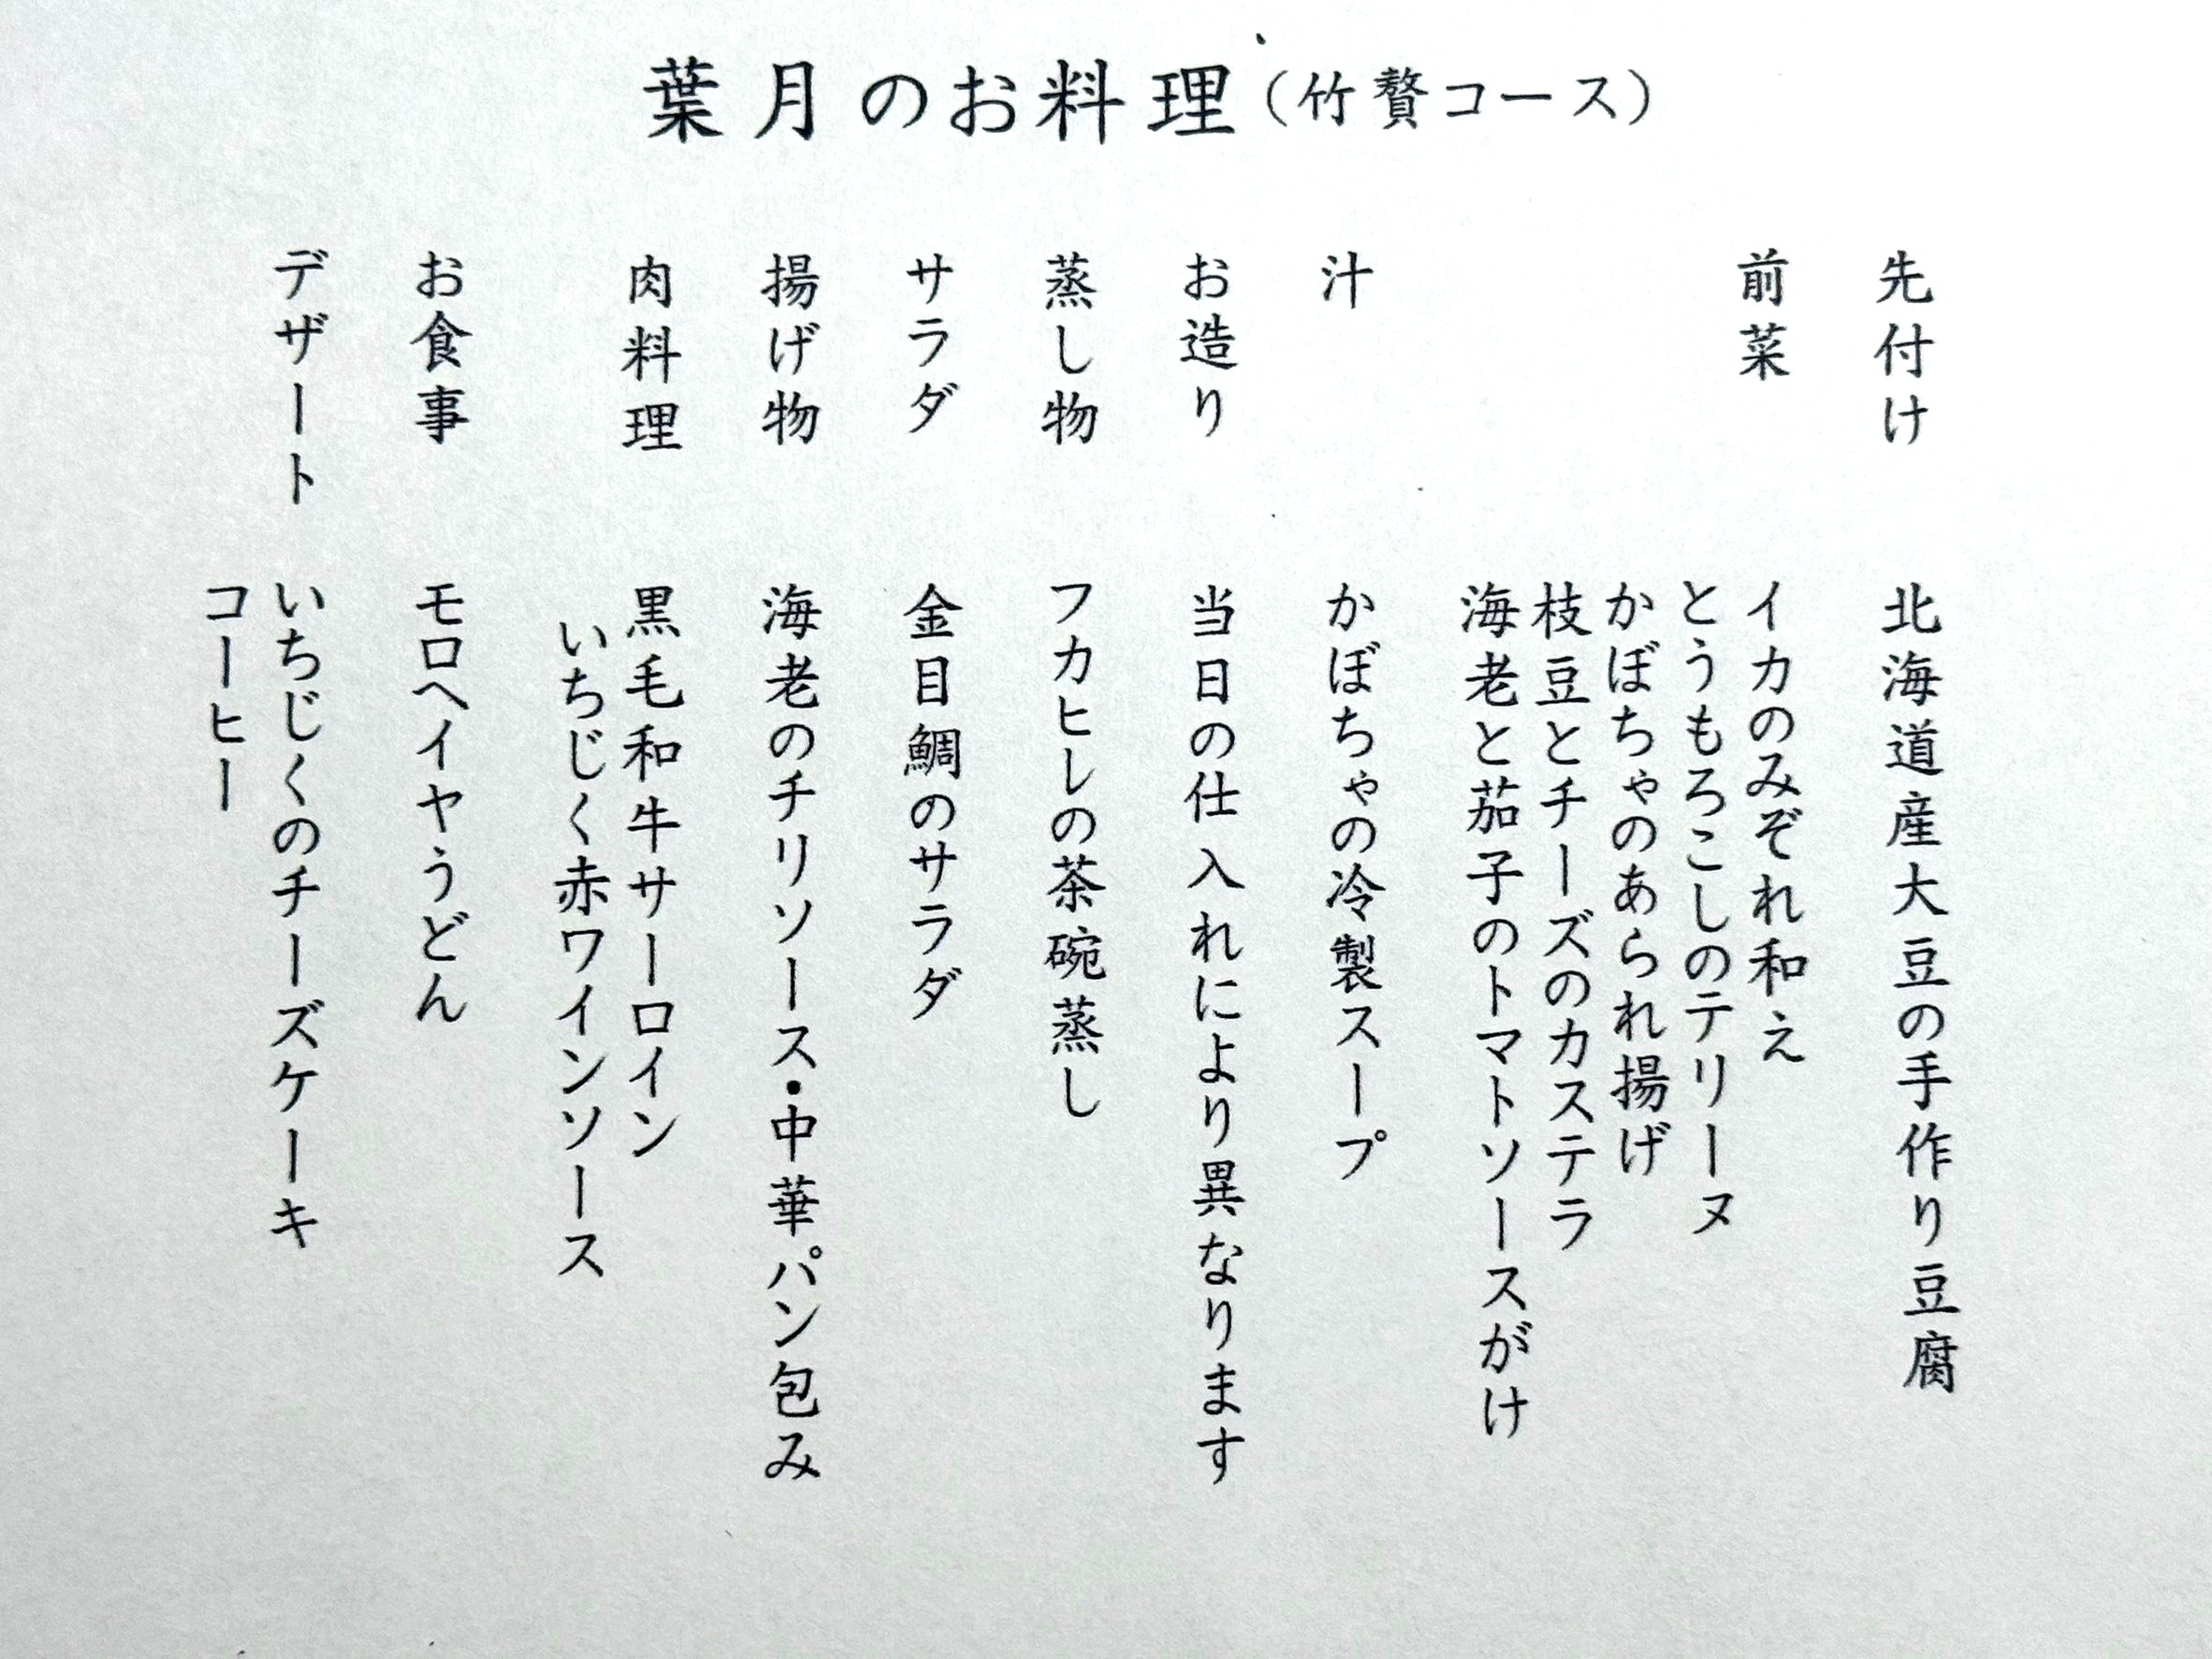 葉月のお料理(竹贅コース)
先付け 北海道産大豆の手作り豆腐
前菜 イカのみぞれ和え
とうもろこしのテリーヌ
かぼちゃのあられ揚げ
枝豆とチーズのカステラ
海老と茄子のトマトソースがけ
汁 かぼちゃの冷製スープ
お造り 当日の仕入れにより異なります
蒸し物 フカヒレの茶碗蒸し
サラダ 金目鯛のサラダ
揚げ物 海老のチリソース・中華パン包み
肉料理 黒毛和牛サーロイン
いちじく赤ワインソース
お食事 モロヘイヤうどん
デザート いちじくのチーズケーキ
コーヒー